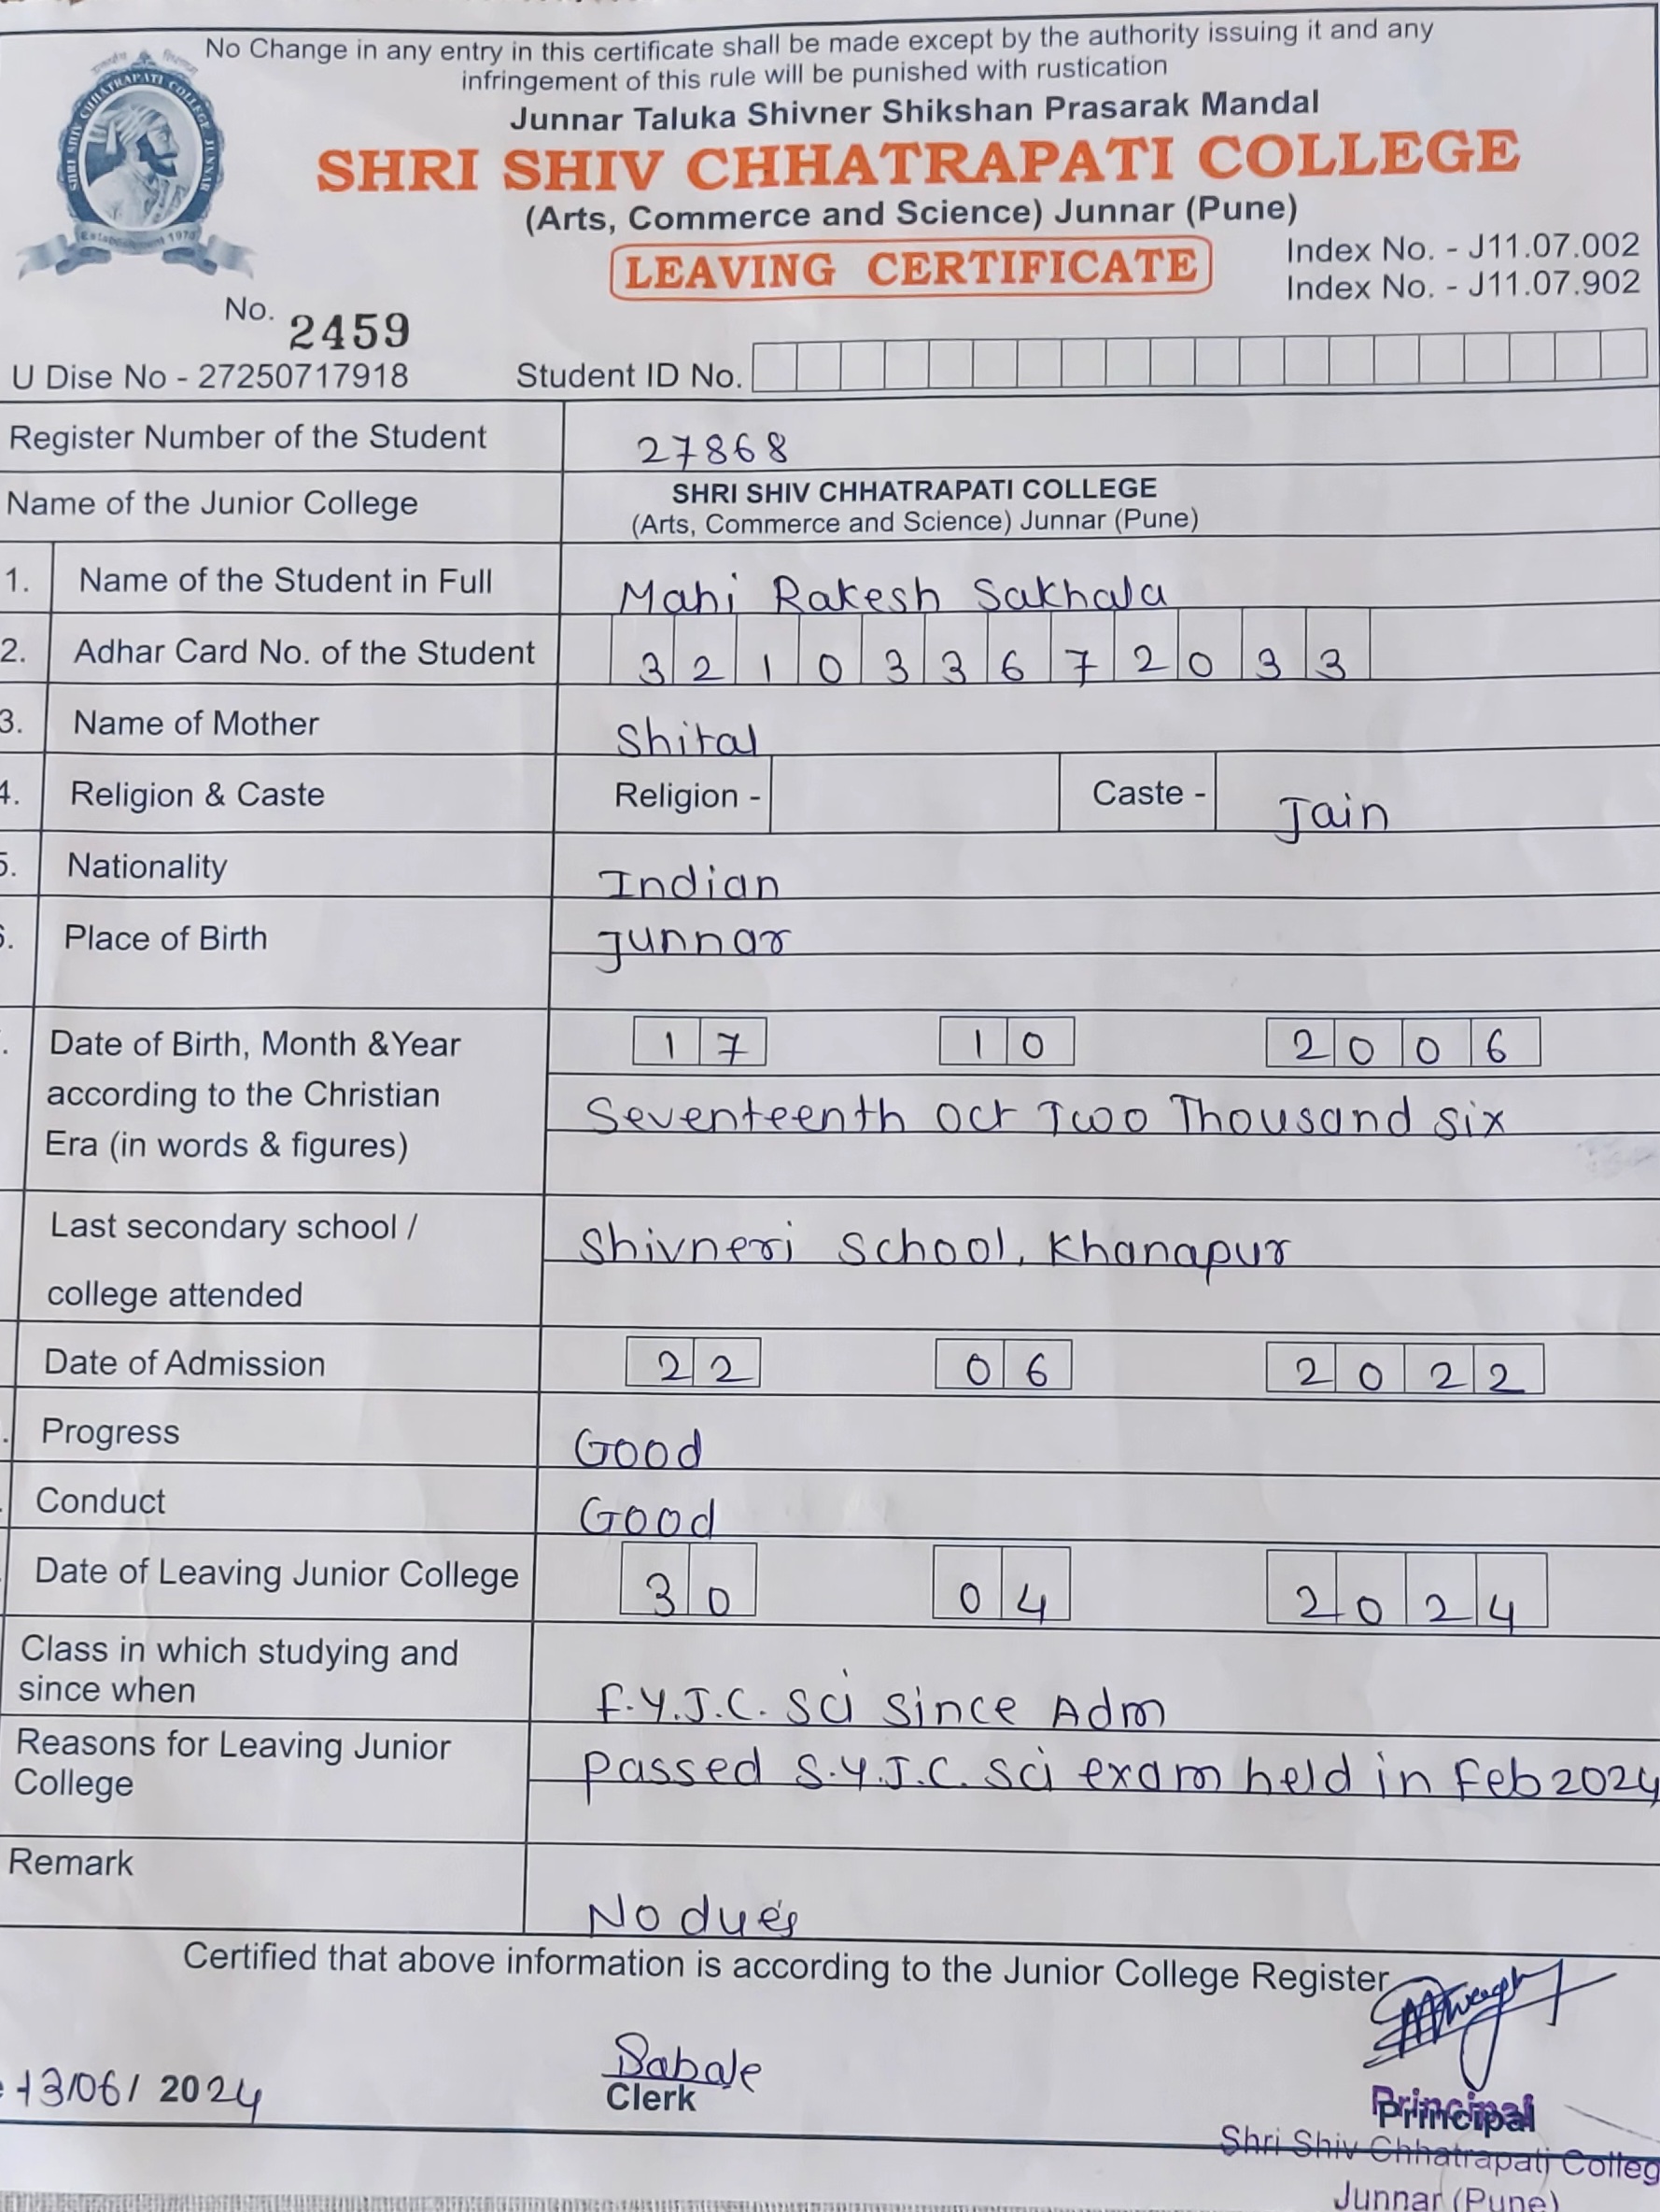 No Change in any entry in this certificate shall be made except by the authority issuing it and any
infringement of this rule will be punished with rustication
Junnar Taluka Shivner Shikshan Prasarak Mandal
SHRI SHIV CHHATRAPATI COLLEGE
(Arts, Commerce and Science) Junnar (Pune)
SHRI SHIV CHHATRAPATI COLLEGE JUNNAR
LEAVING CERTIFICATE
Index No. - J11.07.002
Index No. - J11.07.902
No. 2459
U Dise No - 27250717918 Student ID No.
Register Number of the Student 27868
Name of the Junior College SHRI SHIV CHHATRAPATI COLLEGE
(Arts, Commerce and Science) Junnar (Pune)
1. Name of the Student in Full Mahi Rakesh Sakhala
2. Adhar Card No. of the Student 3 2 1 0 3 3 6 7 2 0 3 3
3. Name of Mother Shital
4. Religion & Caste Religion - Caste - Jain
5. Nationality Indian
6. Place of Birth Junnar
Date of Birth, Month &Year 1 7 1 0 2 0 0 6
according to the Christian Seventeenth Oct Two Thousand Six
Era (in words & figures)
Last secondary school / Shivneri School, Khanapur
college attended
Date of Admission 2 2 0 6 2 0 2 2
Progress Good
Conduct Good
Date of Leaving Junior College 3 0 0 4 2 0 2 4
Class in which studying and
since when F.Y.J.C. Sci Since Adm
Reasons for Leaving Junior Passed S.Y.J.C. Sci exam held in Feb 2024
College
Remark No dues
Certified that above information is according to the Junior College Register
13/06/ 2024
Sabale
Clerk
Principal
Principal
Shri Shiv Chhatrapati Colleg
Junnar (Pune)